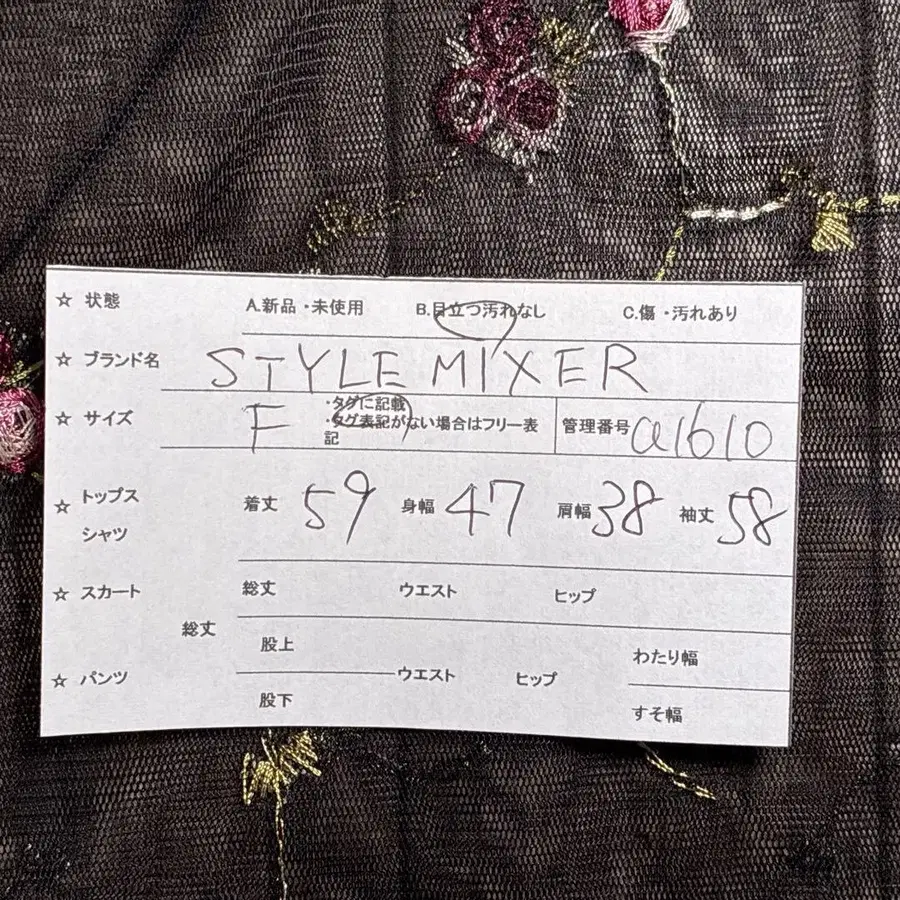 ☆ 状態 A.新品・未使用 B.目立つ汚れなし C.傷・汚れあり
☆ ブランド名 STYLE MIXER
☆ サイズ F ・タグに記載
・タグ表記がない場合はフリー表記
管理番号 a1610
☆ トップス シャツ 着丈 59 身幅 47 肩幅 38 袖丈 58
☆ スカート 総丈 ウエスト ヒップ
☆ パンツ 総丈 股上 ウエスト ヒップ わたり幅
股下 すそ幅